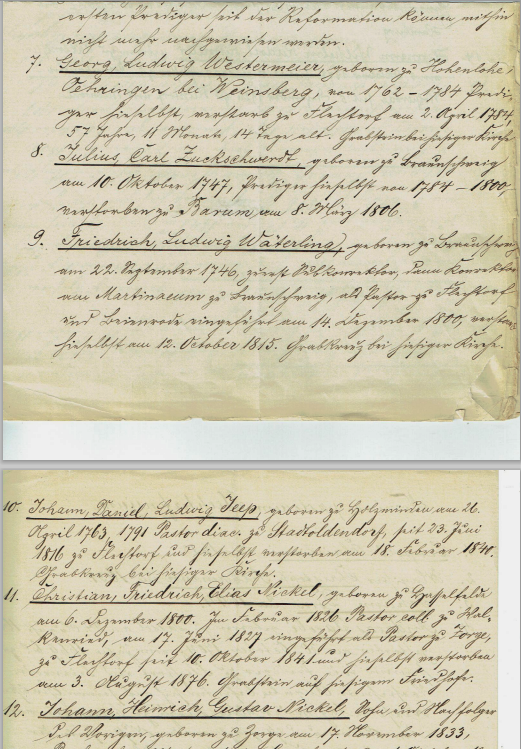 ersten Prediger seit der Reformation können mithin
nicht mehr nachgewiesen werden.
7. Georg, Ludwig Westermeier, geboren zu Hohenlohe,
Oehringen bei Weinsberg, von 1762 - 1784 Predi-
ger hieselbst, verstarb zu Flechtorf am 2. April 1784
57 Jahre, 11 Monate, 14 Tage alt. Grabstein bei hiesiger Kirche
8. Julius, Carl Zuckschwerdt, geboren zu Braunschweig
am 10. Oktober 1747, Prediger hieselbst von 1784 - 1800,
verstorben zu Barum, am 8. März 1806.
9. Friedrich, Ludwig Wäterling, geboren zu Braunschweig
am 22. September 1746, zuerst Subkonrektor, dann Konrektor
am Martinaeum zu Braunschweig, als Pastor zu Flechtorf
und Beienrode eingeführt am 14. Dezember 1800, verstor
hieselbst am 12. October 1815. Grabkreuz bei hiesiger Kirche.
10. Johann, Daniel, Ludwig Jeep, geboren zu Holzminden am 26.
April 1763, 1791 Pastor diac. zu Stadtoldendorf, seit 23. Juni
1816 zu Flechtorf und hieselbst verstorben am 18. Februar 1840.
Grabkreuz bei hiesiger Kirche.
11. Christian, Friedrich, Elias Nickel, geboren zu Hasselfelde
am 6. Dezember 1800. Im Februar 1826 Pastor coll. zu Wal-
kenried, am 17. Juni 1827 eingeführt als Pastor zu Zorge,
zu Flechtorf seit 10. Oktober 1841 und hieselbst verstorben
am 3. August 1876. Grabstein auf hiesigem Friedhofe.
12. Johann, Heinrich, Gustav Nickel, Sohn und Nachfolger
des Vorigen, geboren zu Zorge am 17. November 1833,